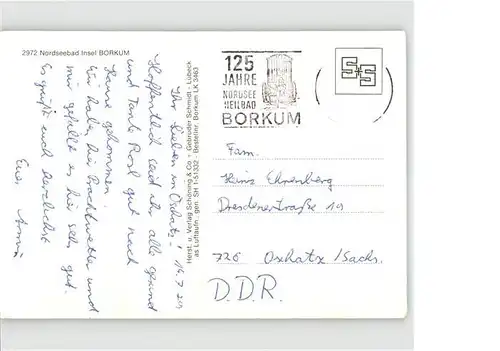 2972 Nordseebad Insel BORKUM
Ihr Lieben in Oschatz!
Hoffentlich seid ihr alle gesund
und Tante Rosl gut nach
Hause gekommen.
Wir haben hier Prachtwetter und
mir gefällt es hier sehr gut.
Es grüßt euch herzlichst
Eure
Herst. u. Verlag Schöning & Co + Gebrüder Schmidt - Lübeck
as Luftaufn. gen. SH 1-51332 - Bestellnr. Borkum LK 3463
125
JAHRE
NORDSEE
HEILBAD
BORKUM
S+S
Fam.
Heinz Ehrenberg
Dresdener Straße 19
726 Oschatz/Sachs.
D.D.R.